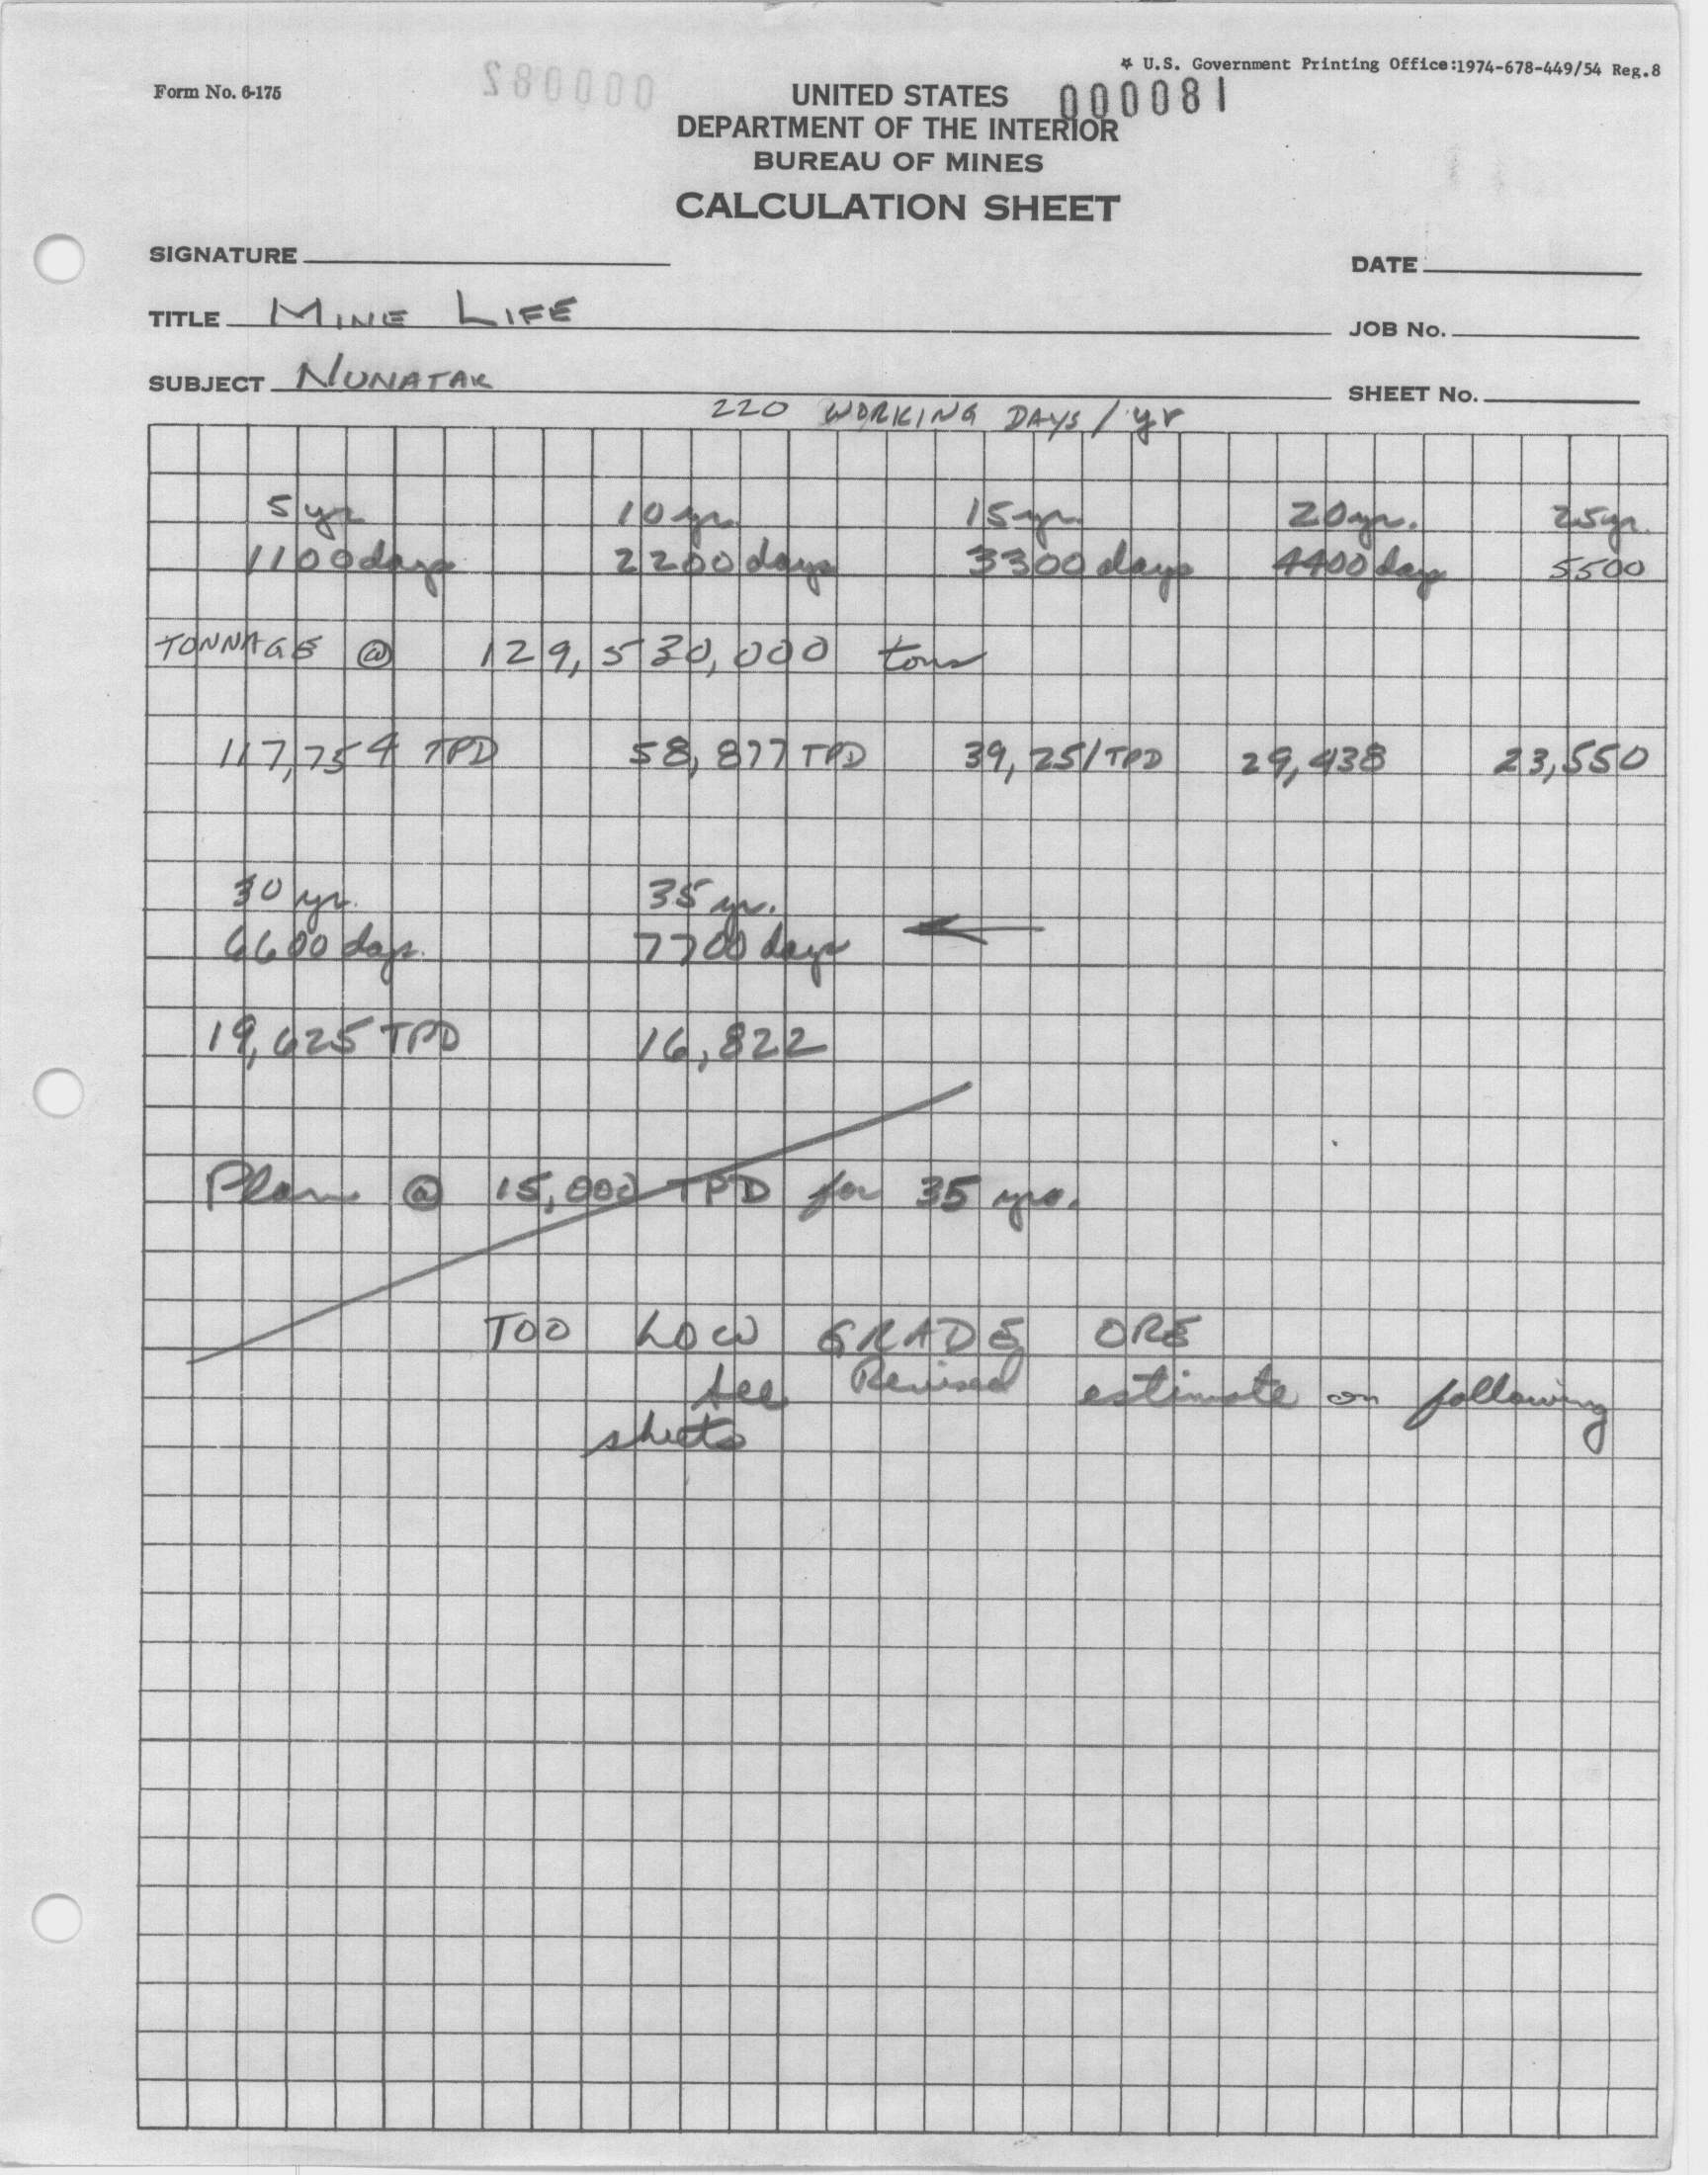 * U.S. Government Printing Office:1974-678-449/54 Reg.8
Form No. 6-175
000082
000081
UNITED STATES
DEPARTMENT OF THE INTERIOR
BUREAU OF MINES
CALCULATION SHEET
SIGNATURE
DATE
TITLE MINE LIFE
JOB No.
SUBJECT NUNATAK
SHEET No.
220 WORKING DAYS / yr
5 yr 10 yr. 15 yr. 20 yr. 25 yr.
1100 days 2200 days 3300 days 4400 days 5500
TONNAGE @ 129,530,000 tons
117,754 TPD 58,877 TPD 39,251 TPD 29,438 23,550
30 yr. 35 yr.
6600 days. 7700 days
19,625 TPD 16,822
Plan @ 15,000 TPD for 35 yrs.
TOO LOW GRADE ORE
see Revised estimate on following
sheets